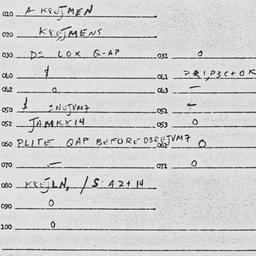 010 A KREJMEN
020 KREJMENS
030 D= LOX Q-AP 031 0
040 1 041 2R1,P3C+OK
042 0 043 —
050 1 =NEJVM7 051 —
052 JAMKX14 053 0
060 PLITE QAP BEFORE D3REJVM7 061 0
070 — 071 0
080 KREJLN, /S:A2+14
090 0
100 0